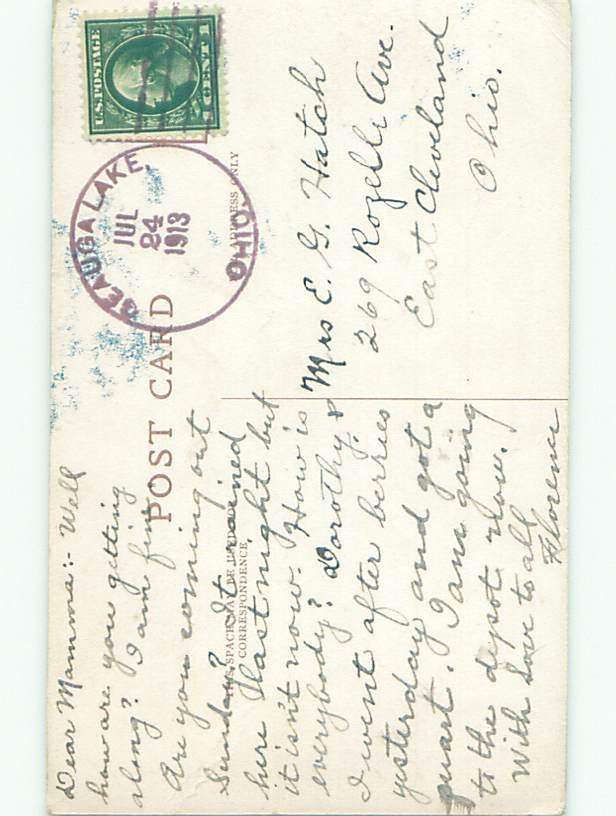 U.S. POSTAGE
1 CENT 1
GEAUGA LAKE,
JUL
24
1913
OHIO.
POST CARD
THIS SPACE MAY BE USED FOR
CORRESPONDENCE
ADDRESS ONLY
Dear Mamma:- Well
how are you getting
along? I am fine.
Are you coming out
Sunday? It rained
here last night but
it isn't now. How is
everybody? Dorothy &
I went after berries
yesterday and got a
quart. I am going
to the depot now.
With love to all
Florence
Mrs E. G. Hatch
269 Rozelle Ave.
East Cleveland
Ohio.